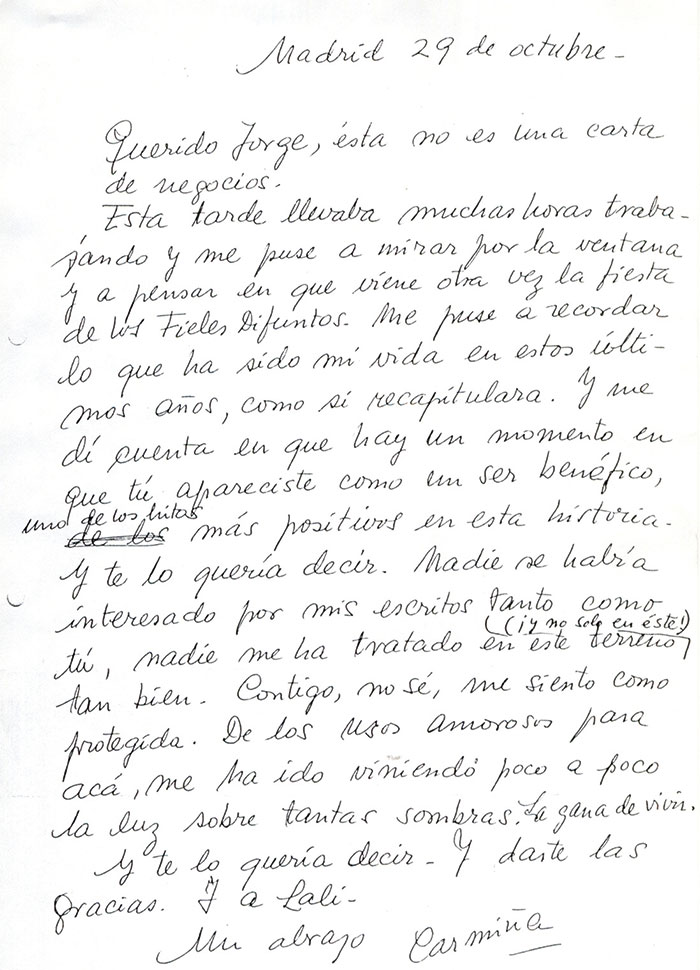 Madrid 29 de octubre -
Querido Jorge, ésta no es una carta
de negocios.
Esta tarde llevaba muchas horas traba-
jando y me puse a mirar por la ventana
y a pensar en que viene otra vez la fiesta
de los Fieles Difuntos. Me puse a recordar
lo que ha sido mi vida en estos últi-
mos años, como si recapitulara. Y me
di cuenta en que hay un momento en
que tú apareciste como un ser benéfico,
uno de los hitos
de los más positivos en esta historia.
Y te lo quería decir. Nadie se habría
interesado por mis escritos tanto como
(¡y no solo en éste!)
tú, nadie me ha tratado en este terreno
tan bien. Contigo, no sé, me siento como
protegida. De los usos amorosos para
acá, me ha ido viniendo poco a poco
la luz sobre tantas sombras. La gana de vivir.
Y te lo quería decir - Y darte las
gracias. Y a Lali -
Un abrazo Carmiña